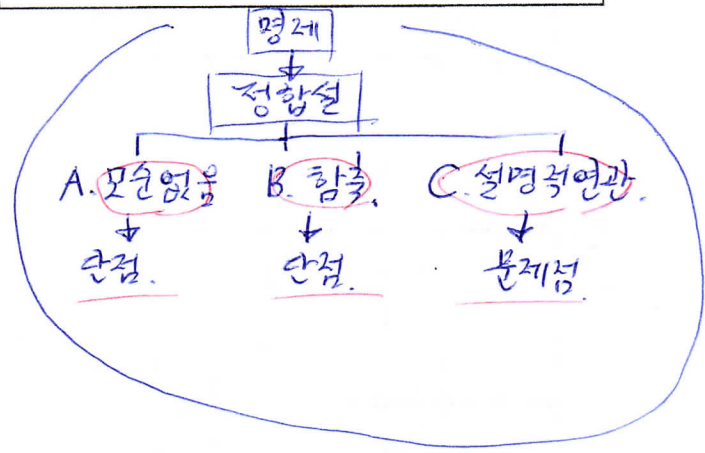 명제
정합설
A. 모순없음 B. 함축. C. 설명적연관.
단점. 단점. 문제점.